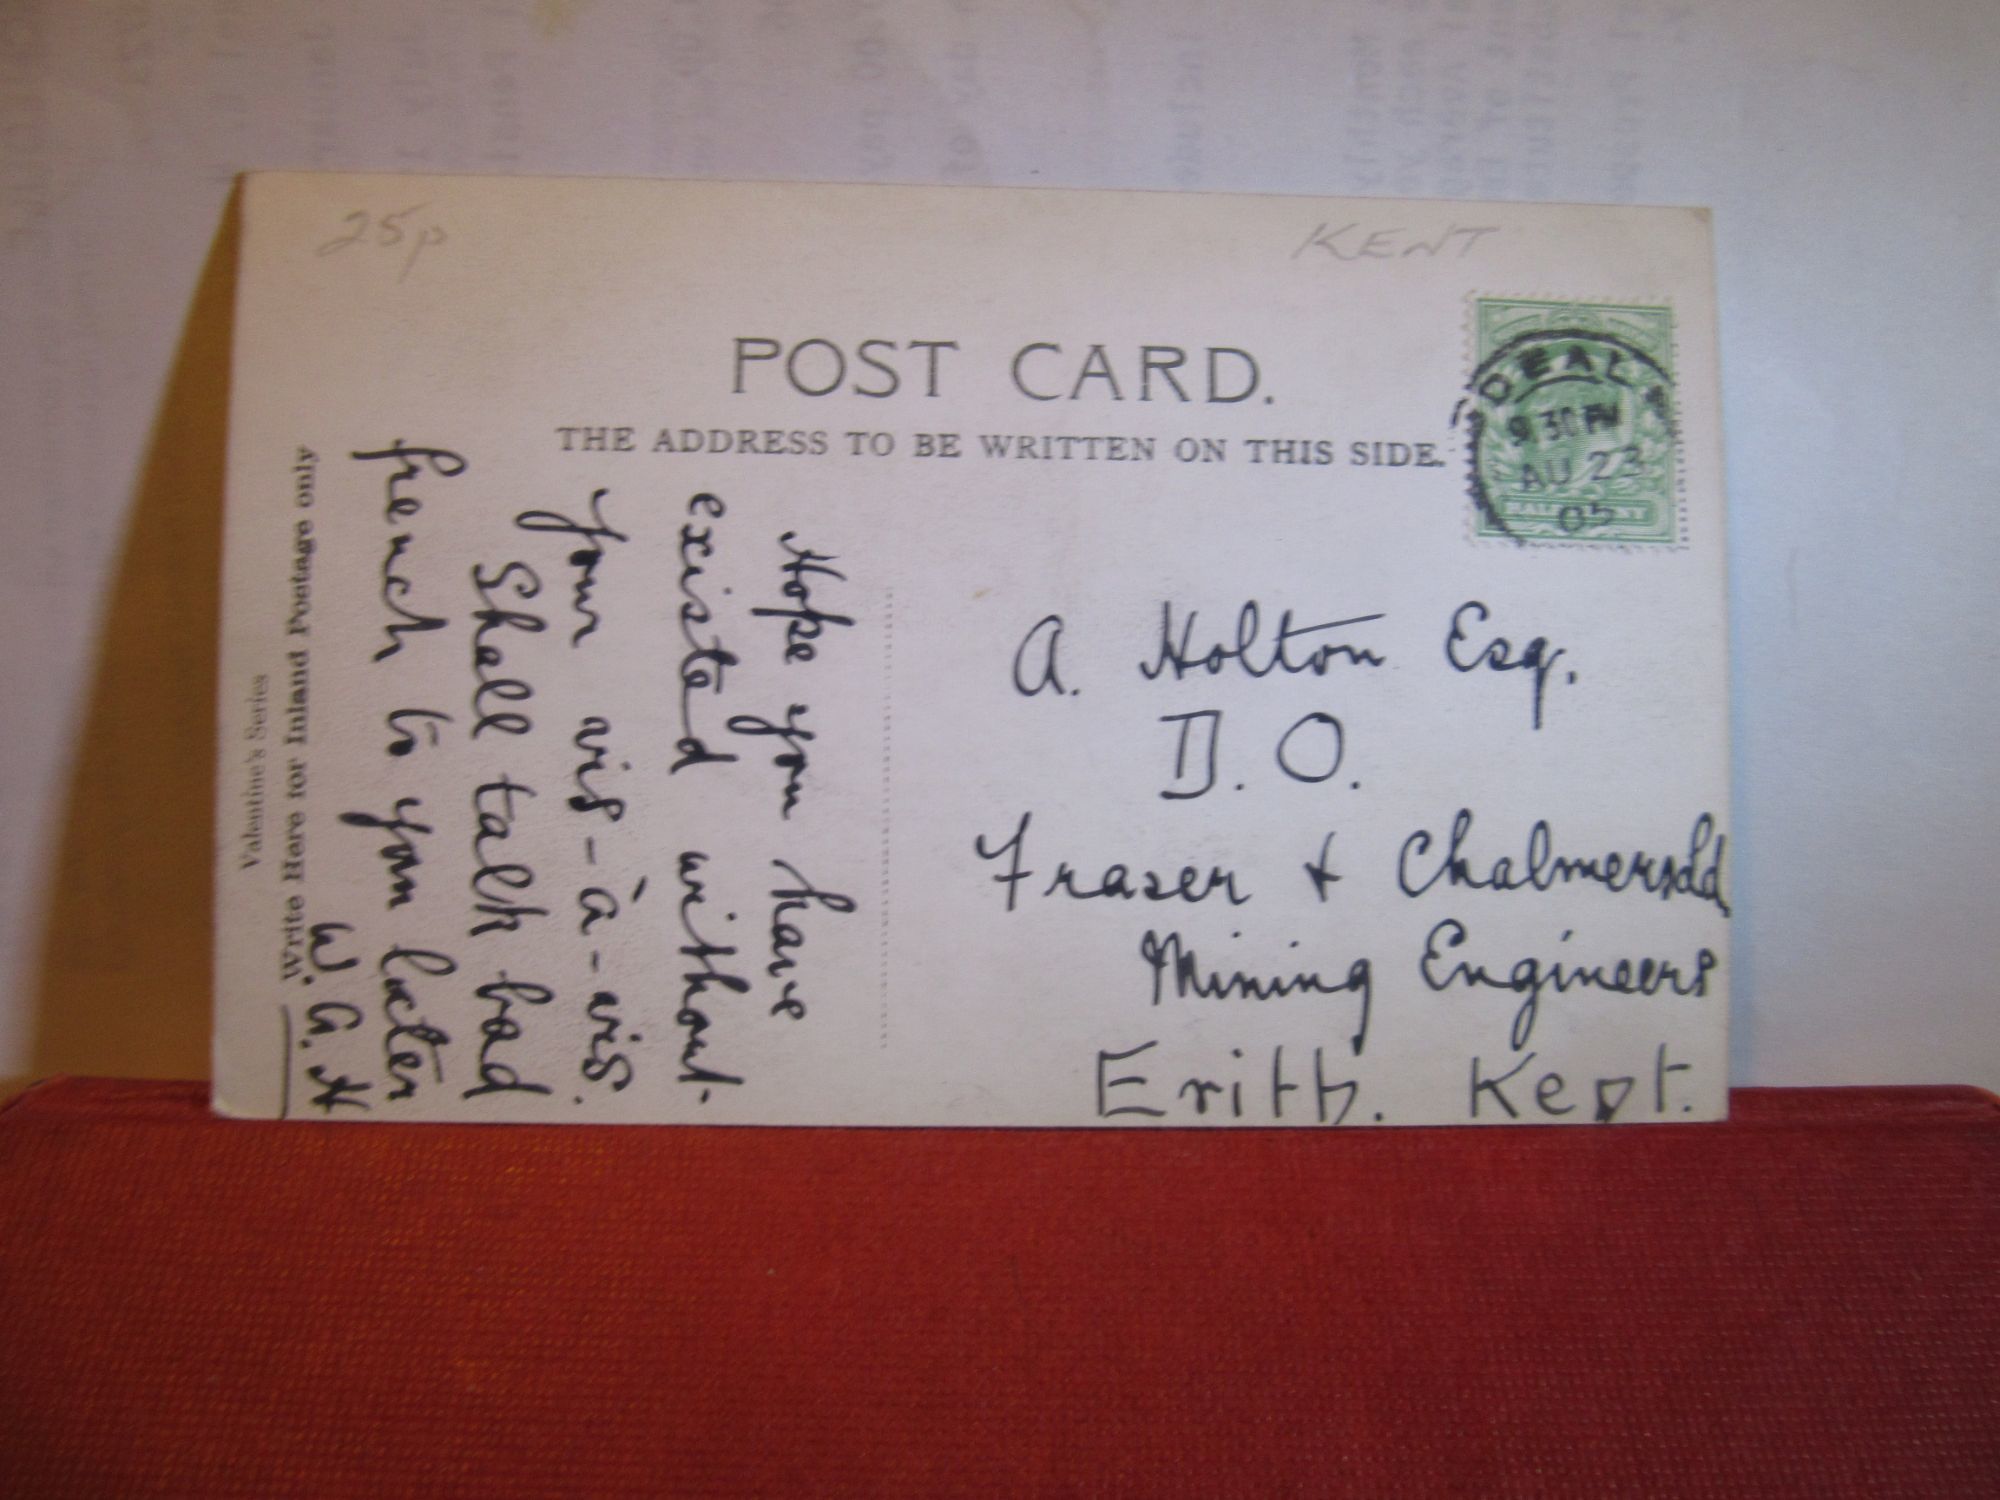 25p
KENT
POST CARD.
THE ADDRESS TO BE WRITTEN ON THIS SIDE.
DEAL
9 30 PM
AU 23
05
HALFPENNY
A. Holton Esq.
D. O.
Fraser & Chalmers Ld
Mining Engineers
Erith. Kent.
Hope you have
existed without
your vis-à-vis.
Shall talk bad
french to you later
W. G. H
Write Here for Inland Postage only
Valentine's Series